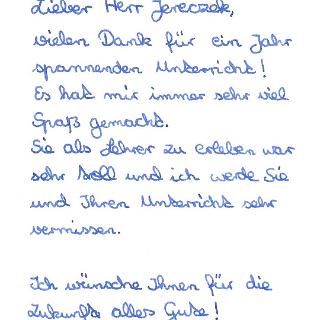 Lieber Herr Jereczek,
vielen Dank für ein Jahr
spannenden Unterricht!
Es hat mir immer sehr viel
Spaß gemacht.
Sie als Lehrer zu erleben war
sehr toll und ich werde Sie
und Ihren Unterricht sehr
vermissen.
Ich wünsche Ihnen für die
Zukunft alles Gute!